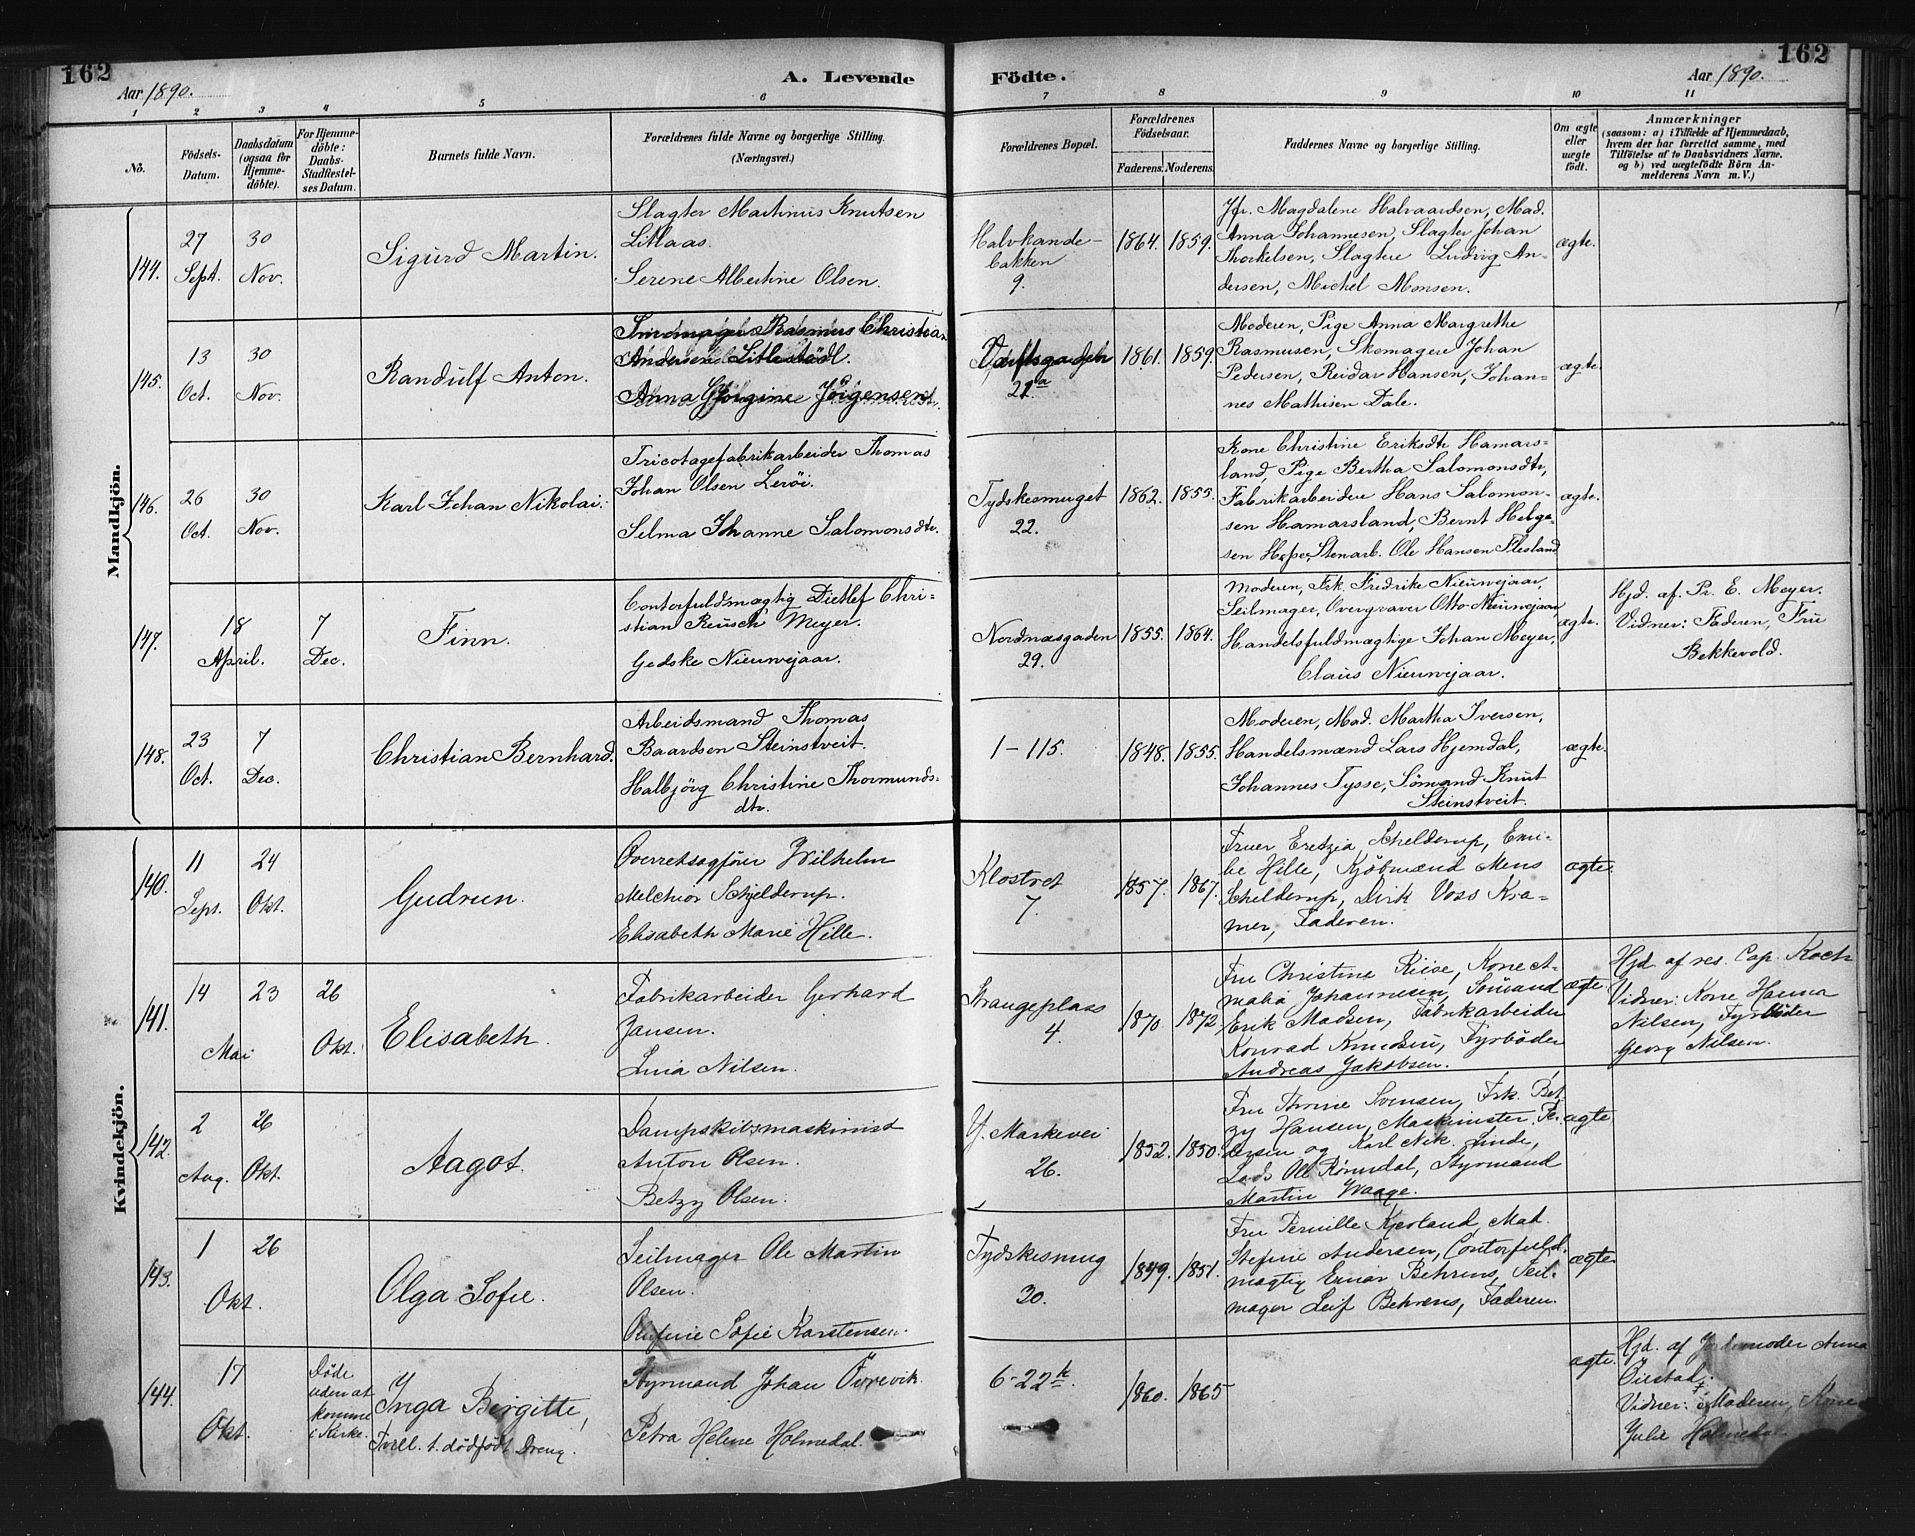 162
162
A. Levende Födte.
Aar 1890.
Aar 1890.
1 2 3 4 5 6 7 8 9 10 11
No.
Födsels-Datum.
Daabsdatum (ogsaa for Hjemme-döbte).
For Hjemme-döbte: Daabs-Stadfæstel-ses Datum.
Barnets fulde Navn.
Forældrenes fulde Navne og borgerlige Stilling. (Næringsvei.)
Forældrenes Bopæl.
Forældrenes Födselsaar.
Faderens. Moderens.
Faddernes Navne og borgerlige Stilling.
Om ægte eller uægte födt.
Anmærkninger
(saasom: a) i Tilfælde af Hjemmedaab,
hvem der har forrettet samme, med
Tilföielse af to Daabsvidners Navne.
og b) ved uægtefödte Börn An-
melderens Navn m. V.)
Mandkjön.
144.
27 Sept.
30 Nov.
Sigurd Martin.
Slagter Martinus Knutsen
Litlaas.
Serene Albertine Olsen.
Halvkande-
bakken
9.
1864. 1859.
Jfr. Magdalene Halvaardsen, Mad.
Anna Johannesen, Slagter Johan
Thorkelsen, Slagtere Ludvig An-
dersen, Michel Monsen.
ægte.
145.
13 Oct.
30 Nov.
Randulf Anton.
Rasmus Christian
Andersen
Anna Jörgensen
Værftsgaden
21a
1861. 1859.
Moderen, Pige Anna Margrethe
Rasmusen, Skomagere Johan
Pedersen, Reidar Hansen, Johan-
nes Mathisen Dale.
ægte.
146.
26 Oct.
30 Nov.
Karl Johan Nikolai.
Tricotagefabrikarbeider Thomas
Johan Olsen Leröi.
Selma Johanne Salomonsdtr.
Tydskesmuget
22.
1862. 1855.
Kone Christine Eriksdtr Hamars-
land, Pige Bertha Salomonsdtr,
Fabrikarbeidere Hans Salomon-
sen Hamarsland, Bernt Helge-
sen Stenarb. Ole Hansen Flesland
ægte.
147.
18 April.
7 Dec.
Finn.
Contorfuldmægtig Dietlef Chri-
stian Reusch Meyer.
Gedske Nieuwejaar.
Nordnæsgaden
29.
1855. 1864.
Moderen, Frk. Fredrike Nieuwejaar,
Seilmager, Overgraver Otto Nieuwejaar,
Handelsfuldmægtige Johan Meyer,
Claus Nieuwejaar.
ægte.
Hjd. af. Pr. E. Meyer.
Vidner: Faderen, Fru
Bekkevold.
148.
23 Oct.
7 Dec.
Christian Bernhard.
Arbeidsmand Thomas
Baardsen Steinstveit.
Halbjörg Christine Thormunds-
dtr.
1-115.
1848. 1855.
Moderen, Mad. Martha Iversen,
Handelsmænd Lars Hjemdal,
Johannes Tysse, Sömand Knut
Steinstveit.
ægte.
Kvindekjön.
140.
11 Sept.
24 Okt.
Gudrun.
Overretssagförer Wilhelm
Melchior Schjelderup.
Elisabeth Marie Hille.
Klostret
7.
1857. 1867.
Fruer Eretzia Schelderup, Emi-
lie Hille, Kjöbmænd Mens
Schelderup, Dirk Voss Kra-
mer, Faderen.
ægte.
141.
14 Mai
23
26 Okt.
Elisabeth.
Fabrikarbeider Gerhard
Jansen.
Lina Nilsen.
Strangeplass
4.
1870. 1872.
Fru Christine Riise, Kone A-
malia Johannesen, Sömand
Erik Madsen, Fabrikarbeider
Konrad Knudsen, Fyrböder
Andreas Jakobsen.
ægte.
Hjd af res. Cap. Koch
Vidner: Kone Hanna
Nilsen, Fyrböder
Georg Nilsen.
142.
2 Aug.
26 Okt.
Aagot.
Dampskibsmaskinist
Anton Olsen.
Betzy Olsen.
Y. Markevei
26.
1852. 1850.
Fru Thrine Svensen, Frk. Bet-
zy Hansen, Maskinister Pe-
dersen og Karl Nik. Linde,
Lods Ole Römdal, Styrmand
Martin Waage.
ægte
143.
1 Okt.
26
Olga Sofie.
Seilmager Ole Martin
Olsen.
Sofie Karstensen.
Tydskesmug
30.
1849. 1851.
Fru Pernille Kjerland, Mad.
Stefine Andersen, Contorfuld-
mægtig Einar Behrens, Seil-
mager Leif Behrens, Faderen.
ægte
144.
17 Okt.
Döde
uden at
komme
i Kirke.
Inga Birgitte,
Tvill. t. dödfödt Dreng.
Styrmand Johan Övrevik.
Petra Helene Holmedal.
6-22k.
1860. 1865
ægte.
Hjd. af Jordemoder Anna
Öiestad.
Vidner: Moderen, Kone
Julie Holmedal